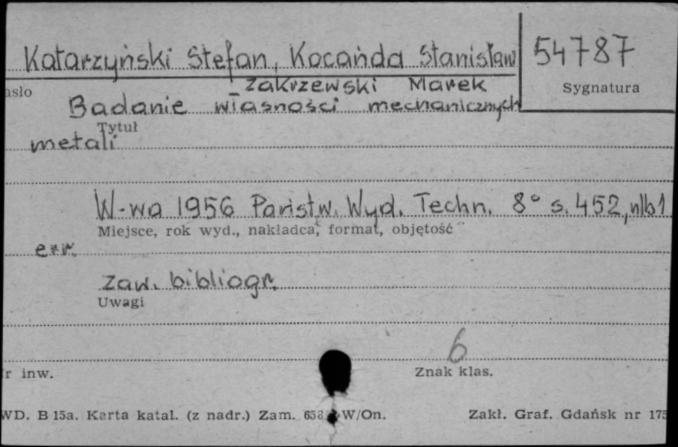 Katarzyński Stefan, Kocańda Stanisław 54787
asło Zakrzewski Marek Sygnatura
Badanie własności mechanicznych
Tytuł
metali
W-wa 1956 Państw. Wyd. Techn. 8° s. 452, nlb 1
Miejsce, rok wyd., nakładca, format, objętość
err.
zaw. bibliogr.
Uwagi
6
r inw. Znak klas.
WD. B 15a. Karta katal. (z nadr.) Zam. W/On. Zakł. Graf. Gdańsk nr 175